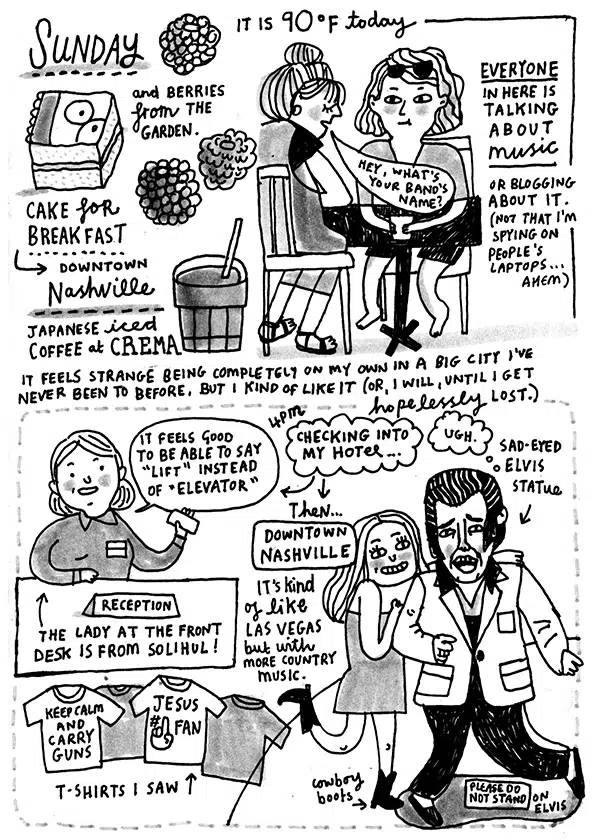 SUNDAY
IT IS 90°F today
and BERRIES
from THE
GARDEN.
CAKE for
BREAKFAST
DOWNTOWN
Nashville
JAPANESE iced
COFFEE at CREMA
HEY, WHAT'S
YOUR BAND'S
NAME?
EVERYONE
IN HERE IS
TALKING
ABOUT
music
OR BLOGGING
ABOUT IT.
(NOT THAT I'M
SPYING ON
PEOPLE'S
LAPTOPS...
AHEM)
IT FEELS STRANGE BEING COMPLETELY ON MY OWN IN A BIG CITY I'VE
NEVER BEEN TO BEFORE, BUT I KIND OF LIKE IT (OR, I WILL, UNTIL I GET
hopelessly LOST.)
4PM
CHECKING INTO
MY HOTEL...
IT FEELS GOOD
TO BE ABLE TO SAY
"LIFT" INSTEAD
OF "ELEVATOR"
RECEPTION
THE LADY AT THE FRONT
DESK IS FROM SOLIHUL!
THEN...
DOWNTOWN
NASHVILLE
UGH.
SAD-EYED
ELVIS
STATUE
IT'S kind
of like
LAS VEGAS
but with
MORE COUNTRY
MUSIC.
KEEP CALM
AND
CARRY
GUNS
JESUS
#1
FAN
T-SHIRTS I SAW
cowboy
boots
PLEASE DO
NOT STAND ON
ELVIS